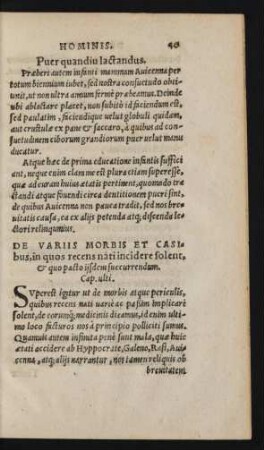 HOMINIS. 40
Puer quandiu lactandus.
Præberi autem infanti mammam Auicenna per
totum biennium iubet, sed nostra consuetudo obti-
nuit, ut non ultra annum fermè præbeamus. Deinde
ubi ablactare placet, non subitò id faciendum est,
sed paulatim, faciendiq́ue uelut globuli quidam,
aut crustulæ ex pane & saccaro, à quibus ad con-
suetudinem ciborum grandiorum puer uelut manu
ducatur.
Atque hæc de prima educatione infantis suffice
ant, neque enim clam me est plura etiam superesse,
quæ ad curam huius ætatis pertinent, quomodo tra-
ctandi atque fouendi circa dentitionem pueri sint,
de quibus Auicenna non pauca tradit, sed nos bre-
uitatis causa, ea ex alijs petenda atq́; discenda le-
ctori relinquimus.
DE VARIIS MORBIS ET CASI
bus, in quos recens nati incidere solent,
& quo pacto ijsdem succurrendum.
Cap. ulti.
SVperest igitur ut de morbis atque periculis,
quibus recens nati uariè ac passim implicari
solent, de eorumq́; medicinis dicamus, id enim ulti
mo loco facturos nos à principio polliciti sumus.
Quamuis autem infinita penè sunt mala, quæ huic
ætati accidere ab Hyppocrate, Galeno, Rasi, Aui-
cenna, atq́; alijs narrantur, nos tamen reliquis ob
breuitatem